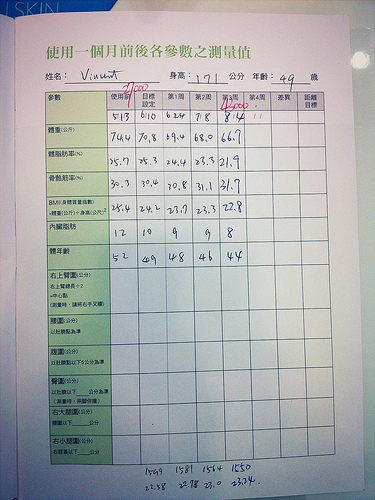 SKIN
使用一個月前後各參數之測量值
姓名： Vincent 身高： 171 公分 年齡： 49 歲
參數 使用前 目標設定 第1周 第2周 第3周 第4周 差異 距離目標
5/3 6/10 6/24 7/8 8/4
體重(公斤) 74.4 70.8 69.4 68.0 66.7
體脂肪率(%) 25.7 25.3 24.4 23.3 21.9
骨骼肌率(%) 30.3 30.4 30.8 31.1 31.7
BMI(身體質量指數)
=體重(公斤)÷身高(公尺)² 25.4 24.2 23.7 23.3 22.8
內臟脂肪 12 10 9 9 8
體年齡 52 49 48 46 44
右上臂圍(公分)
右上臂總長÷2
=中心點
(測量時，請將右手叉腰)
腰圍(公分)
以肚臍點為準
腹圍(公分)
以肚臍點以下5公分為準
臀圍(公分)
以肚臍以下____公分為準
(測量時，兩腳併攏)
右大腿圍(公分)
腰圍以下____公分
右小腿圍(公分)
右膝蓋以下____公分
1599 1581 1564 1550
22.58 22.78 23.0 23.24